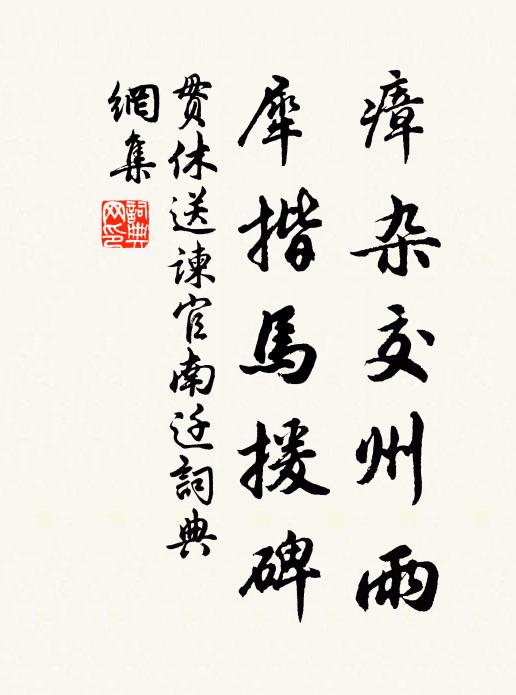 瘴杂交州雨
犀揩馬援碑
贯休送諫官南迁詞典
網集
詞典網印